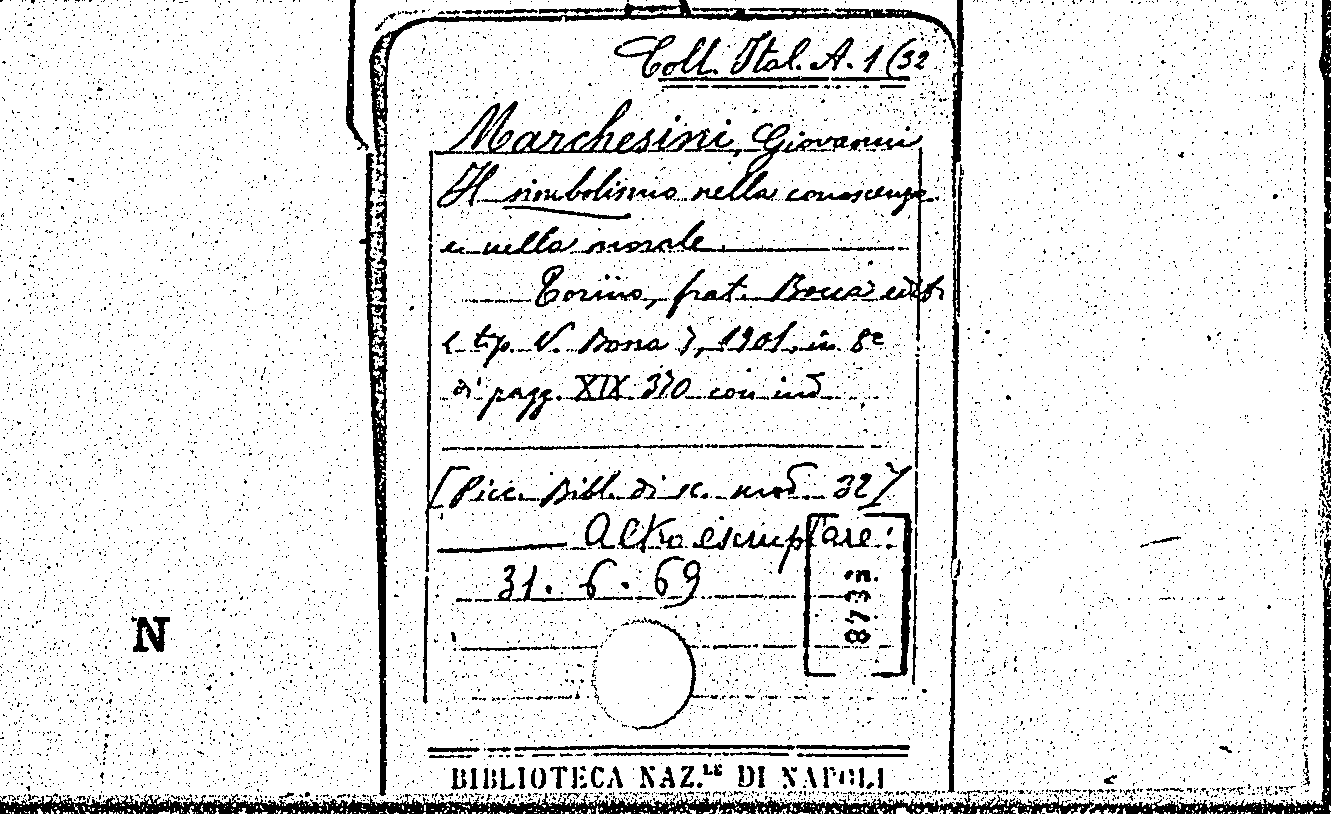 Coll. Ital. A. 1 (32
Marchesini, Giovanni
Il simbolismo nella conoscenza
e nella morale.
Torino, frat. Bocca edit.
(tip. V. Bona), 1901. in 8°
di pagg. XIX 370 con ind
[Picc. Bibl. di sc. mod. 32]
Altro esemplare:
31. 6. 69
873
N
BIBLIOTECA NAZ.LE DI NAPOLI